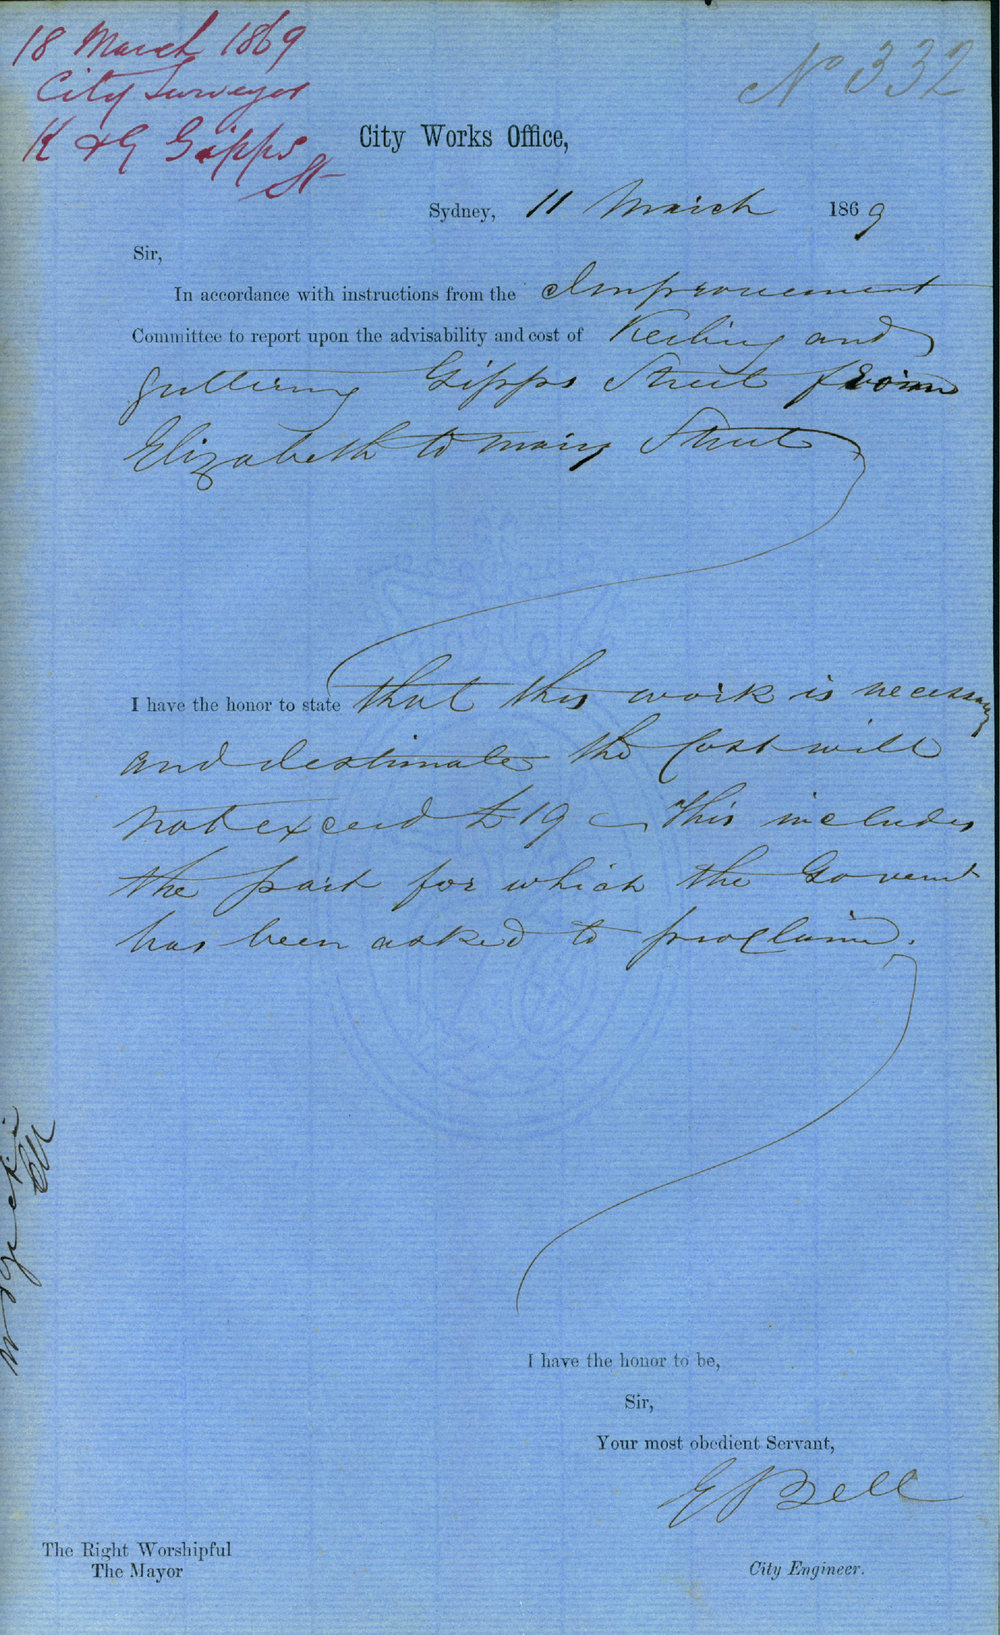 18 March 1869
City Surveyor
K & G Gipps
St
No 332
City Works Office,
Sydney, 11 March 1869
Sir,
In accordance with instructions from the Improvement
Committee to report upon the advisability and cost of Kerbing and
guttering Gipps Street from
Elizabeth to Mary Street
I have the honor to state that this work is necessary
and I estimate the Cost will
not exceed £19 This includes
the part for which the Govermt
has been asked to proclaim.
I have the honor to be,
Sir,
Your most obedient Servant,
E Bell
The Right Worshipful
The Mayor
City Engineer.